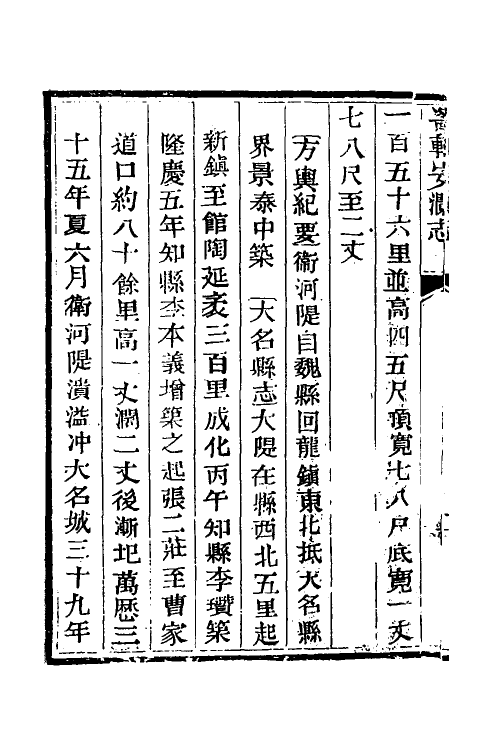 畿輔安瀾志
一百五十六里並高四五尺頂寬七八尺底寬一丈
七八尺至二丈
〔方輿紀要〕衞河隄自魏縣回龍鎮東北抵大名縣
界景泰中築〔大名縣志〕大隄在縣西北五里起
新鎮至館陶延袤三百里成化丙午知縣李瓚築
隆慶五年知縣李本義增築之起張二莊至曹家
道口約八十餘里高一丈濶二丈後漸圯萬歷三
十五年夏六月衞河隄潰溢冲大名城三十九年